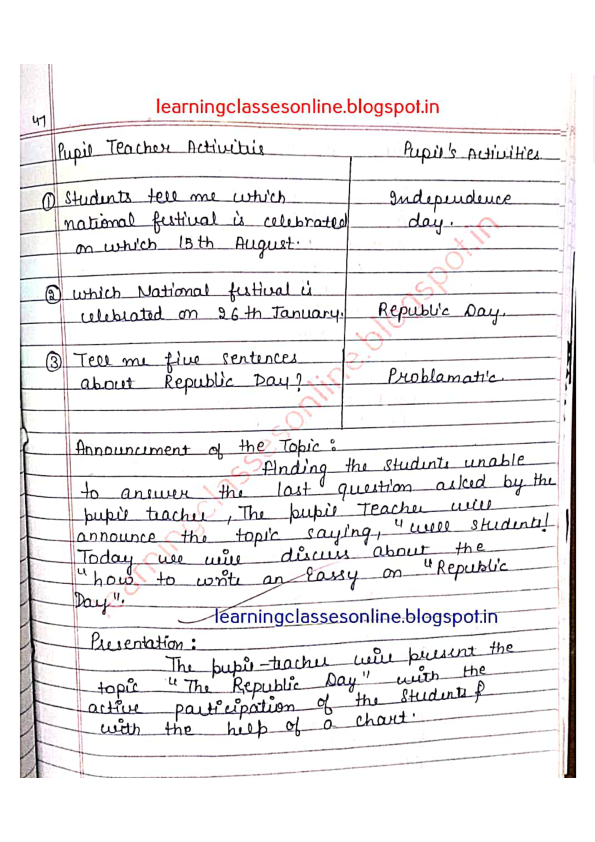 learningclassesonline.blogspot.in
47
Pupil Teacher Activitiis Pupil's Activities
① Students tell me which Independence
national festival is celebrated day.
on which 15th August.
② which National festival is
celebrated on 26th January. Republic Day.
③ Tell me five sentences
about Republic Day? Problamatic.
Announcement of the Topic :
Finding the students unable
to answer the last question asked by the
pupil teacher, The pupil Teacher will
announce the topic saying, "well students!
Today we will discuss about the
"how to write an Eassy on "Republic
Day".
learningclassesonline.blogspot.in
Presentation :
The pupil-teacher will present the
topic "The Republic Day" with the
active participation of the students &
with the help of a chart.
learningclassesonline.blogspot.in